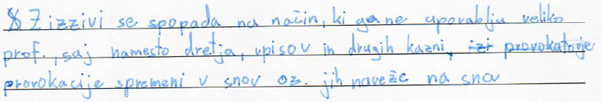 Z izzivi se spopada na način, ki ga ne uporablja veliko
prof., saj namesto dretja, vpisov in drugih kazni, provokatnje
provokacije spremeni v snov oz. jih naveže na snov